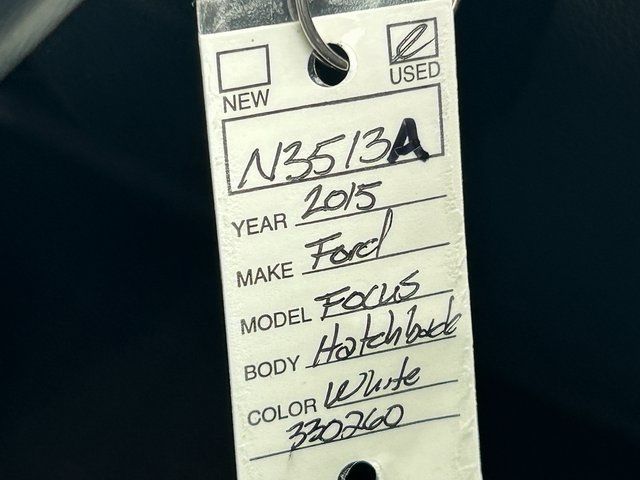 NEW USED
N3513A
YEAR 2015
MAKE Ford
MODEL Focus
BODY Hatchback
COLOR White
330260